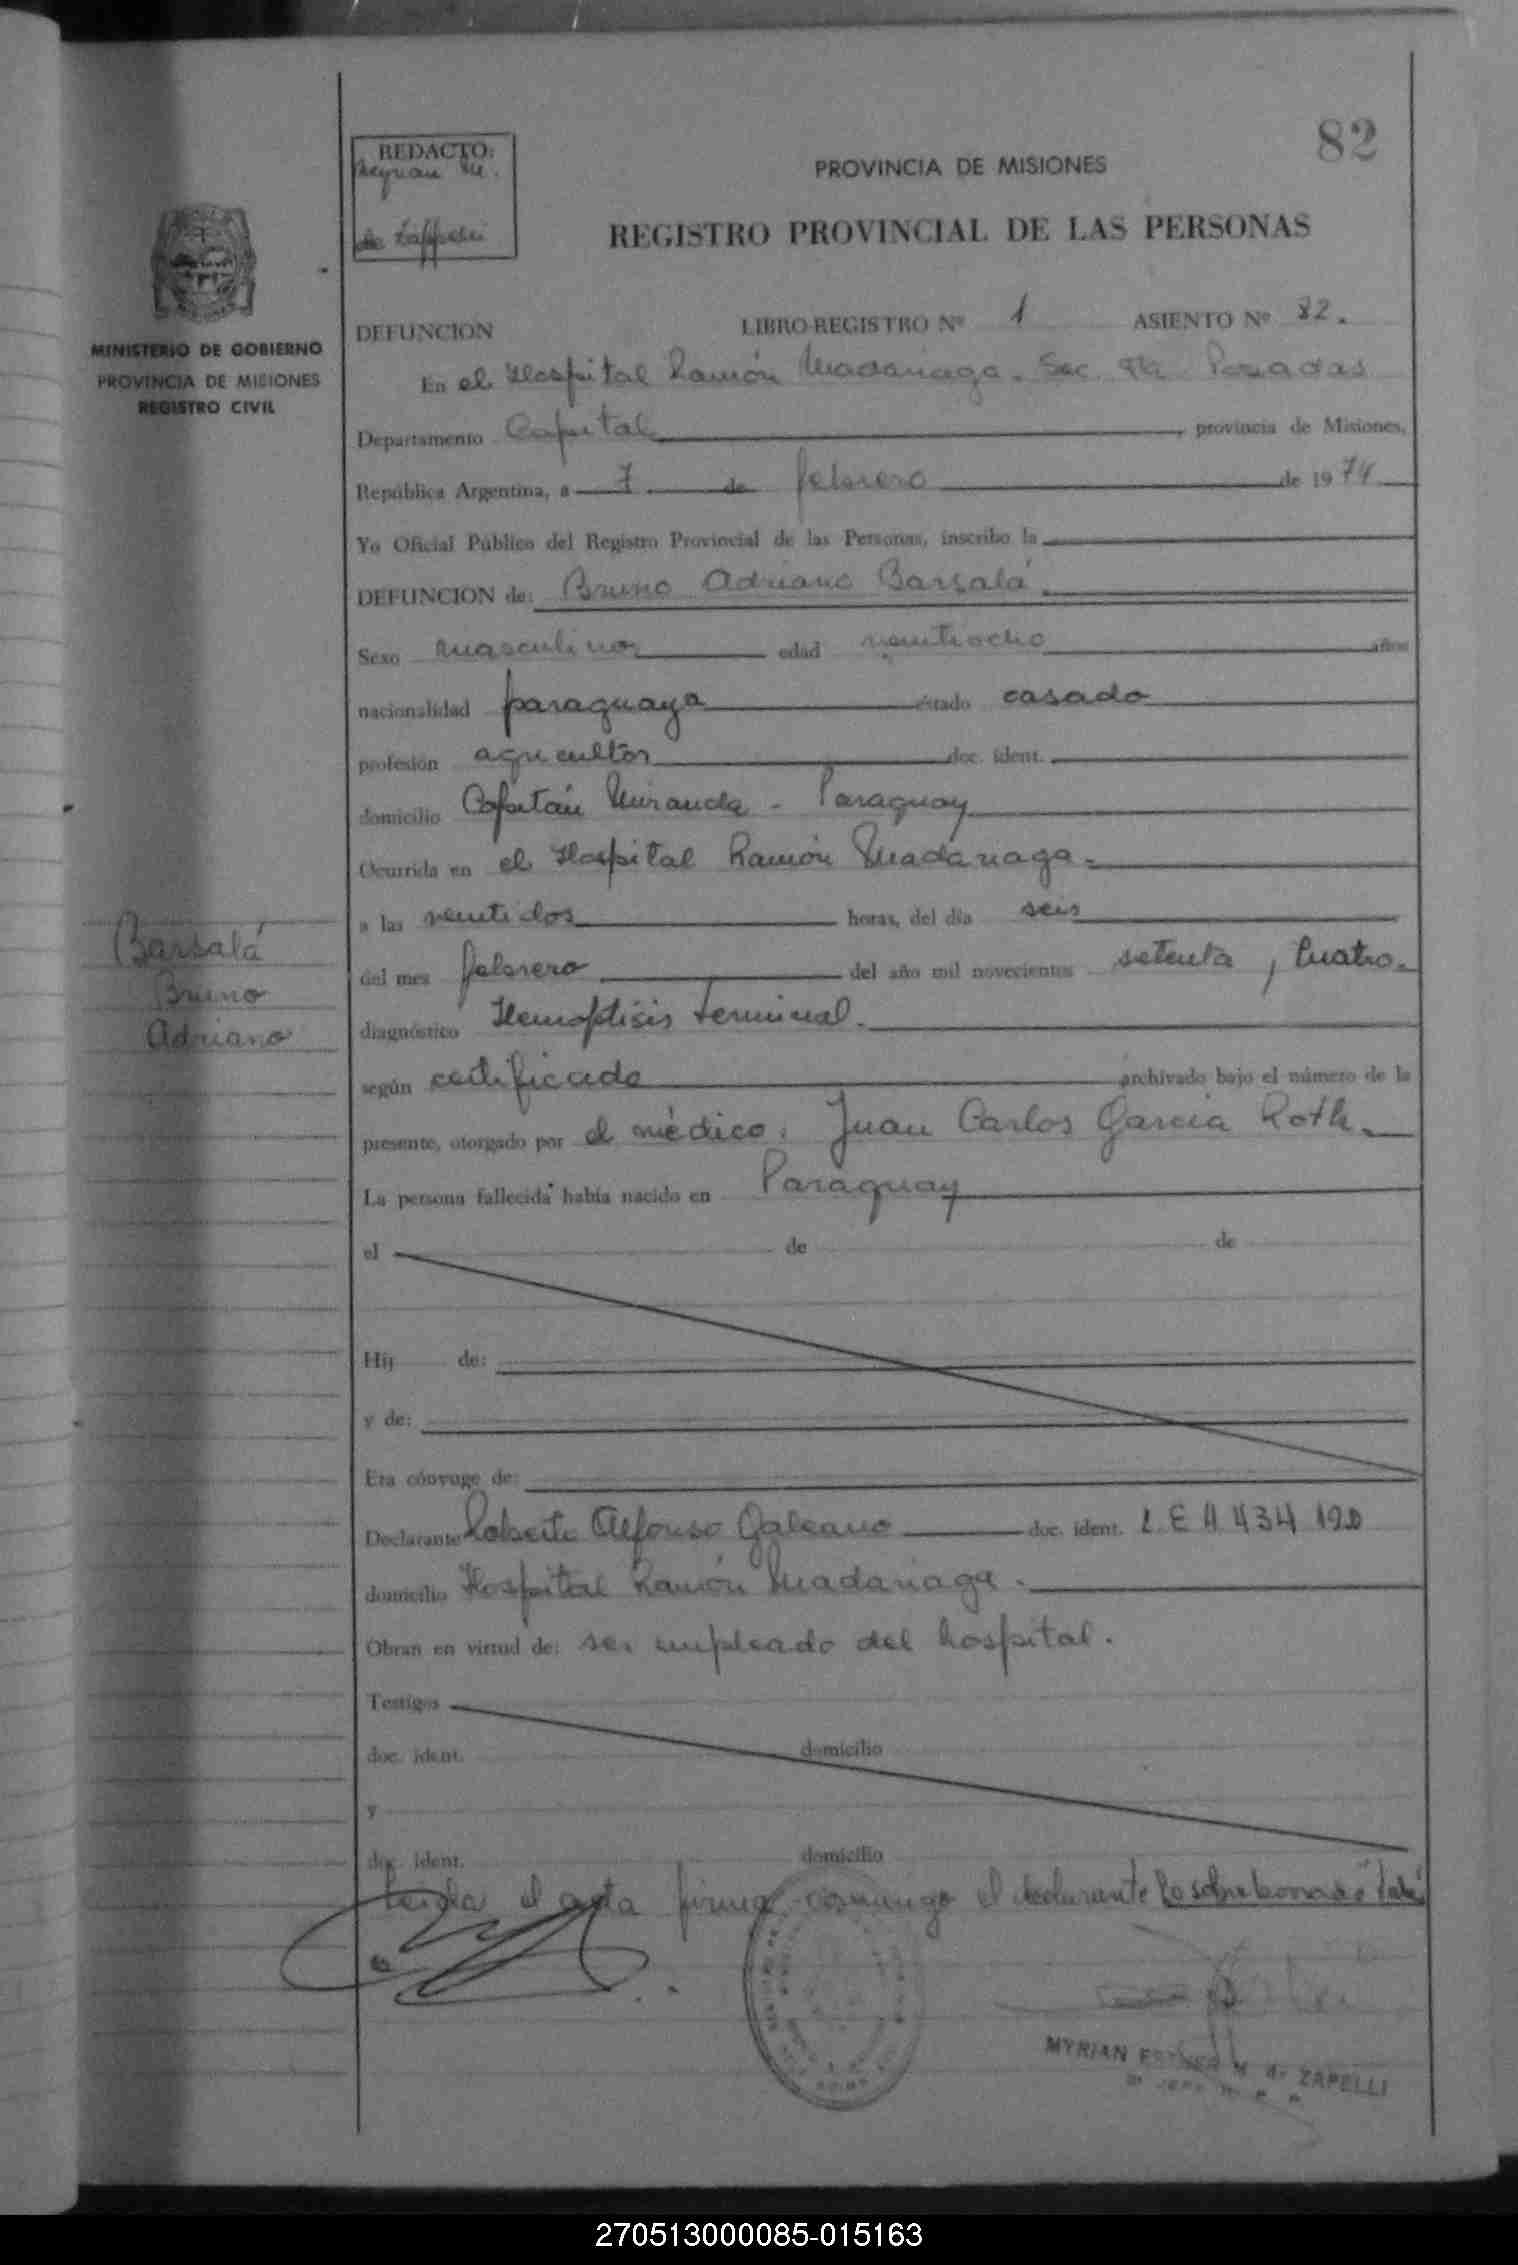 82
REDACTO:
Myrian M.
de Zappelli
PROVINCIA DE MISIONES
REGISTRO PROVINCIAL DE LAS PERSONAS
MINISTERIO DE GOBIERNO
PROVINCIA DE MISIONES
REGISTRO CIVIL
DEFUNCION LIBRO-REGISTRO Nº 1 ASIENTO Nº 82.
En el Hospital Ramón Madariaga. Sec. Posadas
Departamento Capital, provincia de Misiones,
República Argentina, a 7 de febrero de 1974
Yo Oficial Público del Registro Provincial de las Personas, inscribo la
DEFUNCION de: Bruno Adriano Barsalá
Sexo masculino edad veintiocho años
nacionalidad paraguaya estado casado
profesión agricultor doc. ident.
domicilio Capitán Miranda - Paraguay
Ocurrida en el Hospital Ramón Madariaga.
a las veintidos horas, del día seis
del mes febrero del año mil novecientos setenta y cuatro.
diagnóstico Hemoptisis terminal.
según certificado archivado bajo el número de la
presente, otorgado por el médico: Juan Carlos Garcia Roth.
La persona fallecida había nacido en Paraguay
Barsalá
Bruno
Adriano
el de de
Hij de:
y de:
Era cónyuge de:
Declarante Roberto Alfonso Galeano doc. ident. L E 4 434 120
domicilio Hospital Ramón Madariaga.
Obran en virtud de: ser empleado del hospital.
Testigos
doc. ident. domicilio
y
doc. ident. domicilio
Leida el acta firma conmigo el declarante
MYRIAN ESTHER M de ZAPELLI
270513000085-015163